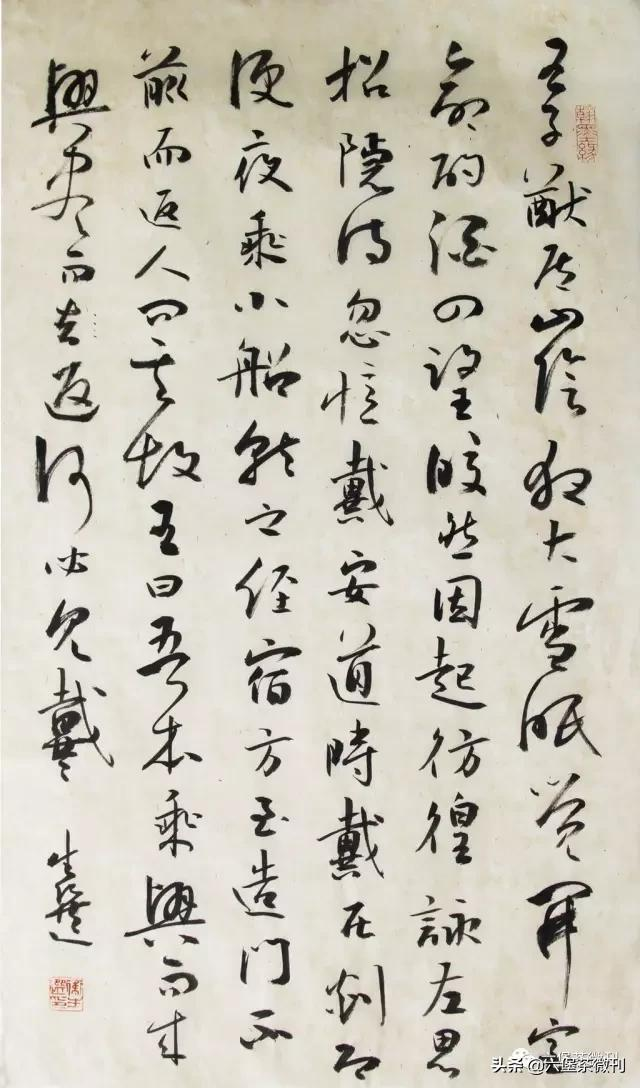 王子猷居山陰夜大雪眠覺開室
命酌酒四望皎然因起彷徨詠左思
招隱詩忽憶戴安道時戴在剡即
便夜乘小船就之經宿方至造門不
前而返人問其故王曰吾本乘興而
興盡而去返何必見戴
翰墨緣
头条 @六堡茶微刊